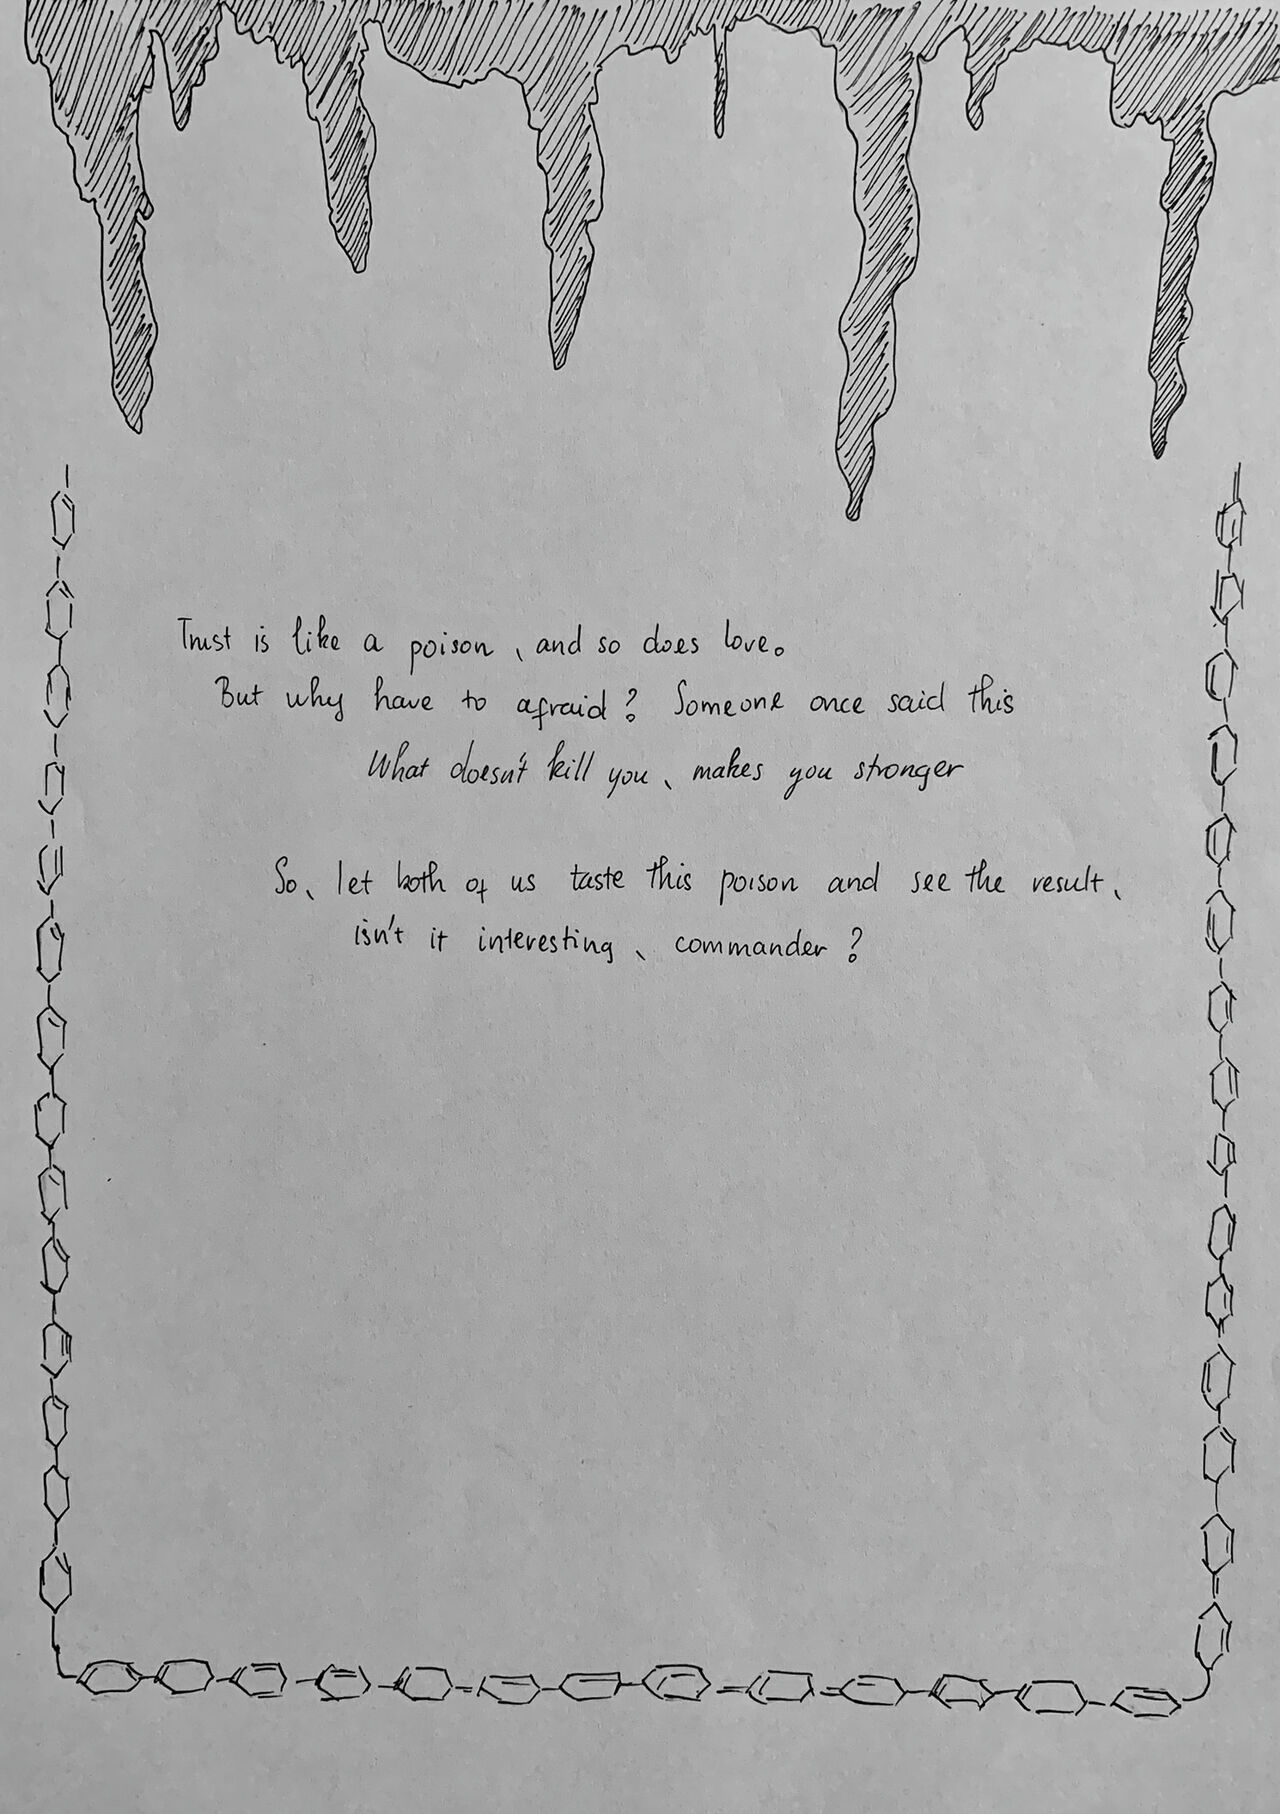 Trust is like a poison, and so does love.
But why have to afraid? Someone once said this
What doesn't kill you, makes you stronger
So, let both of us taste this poison and see the result,
isn't it interesting, commander?